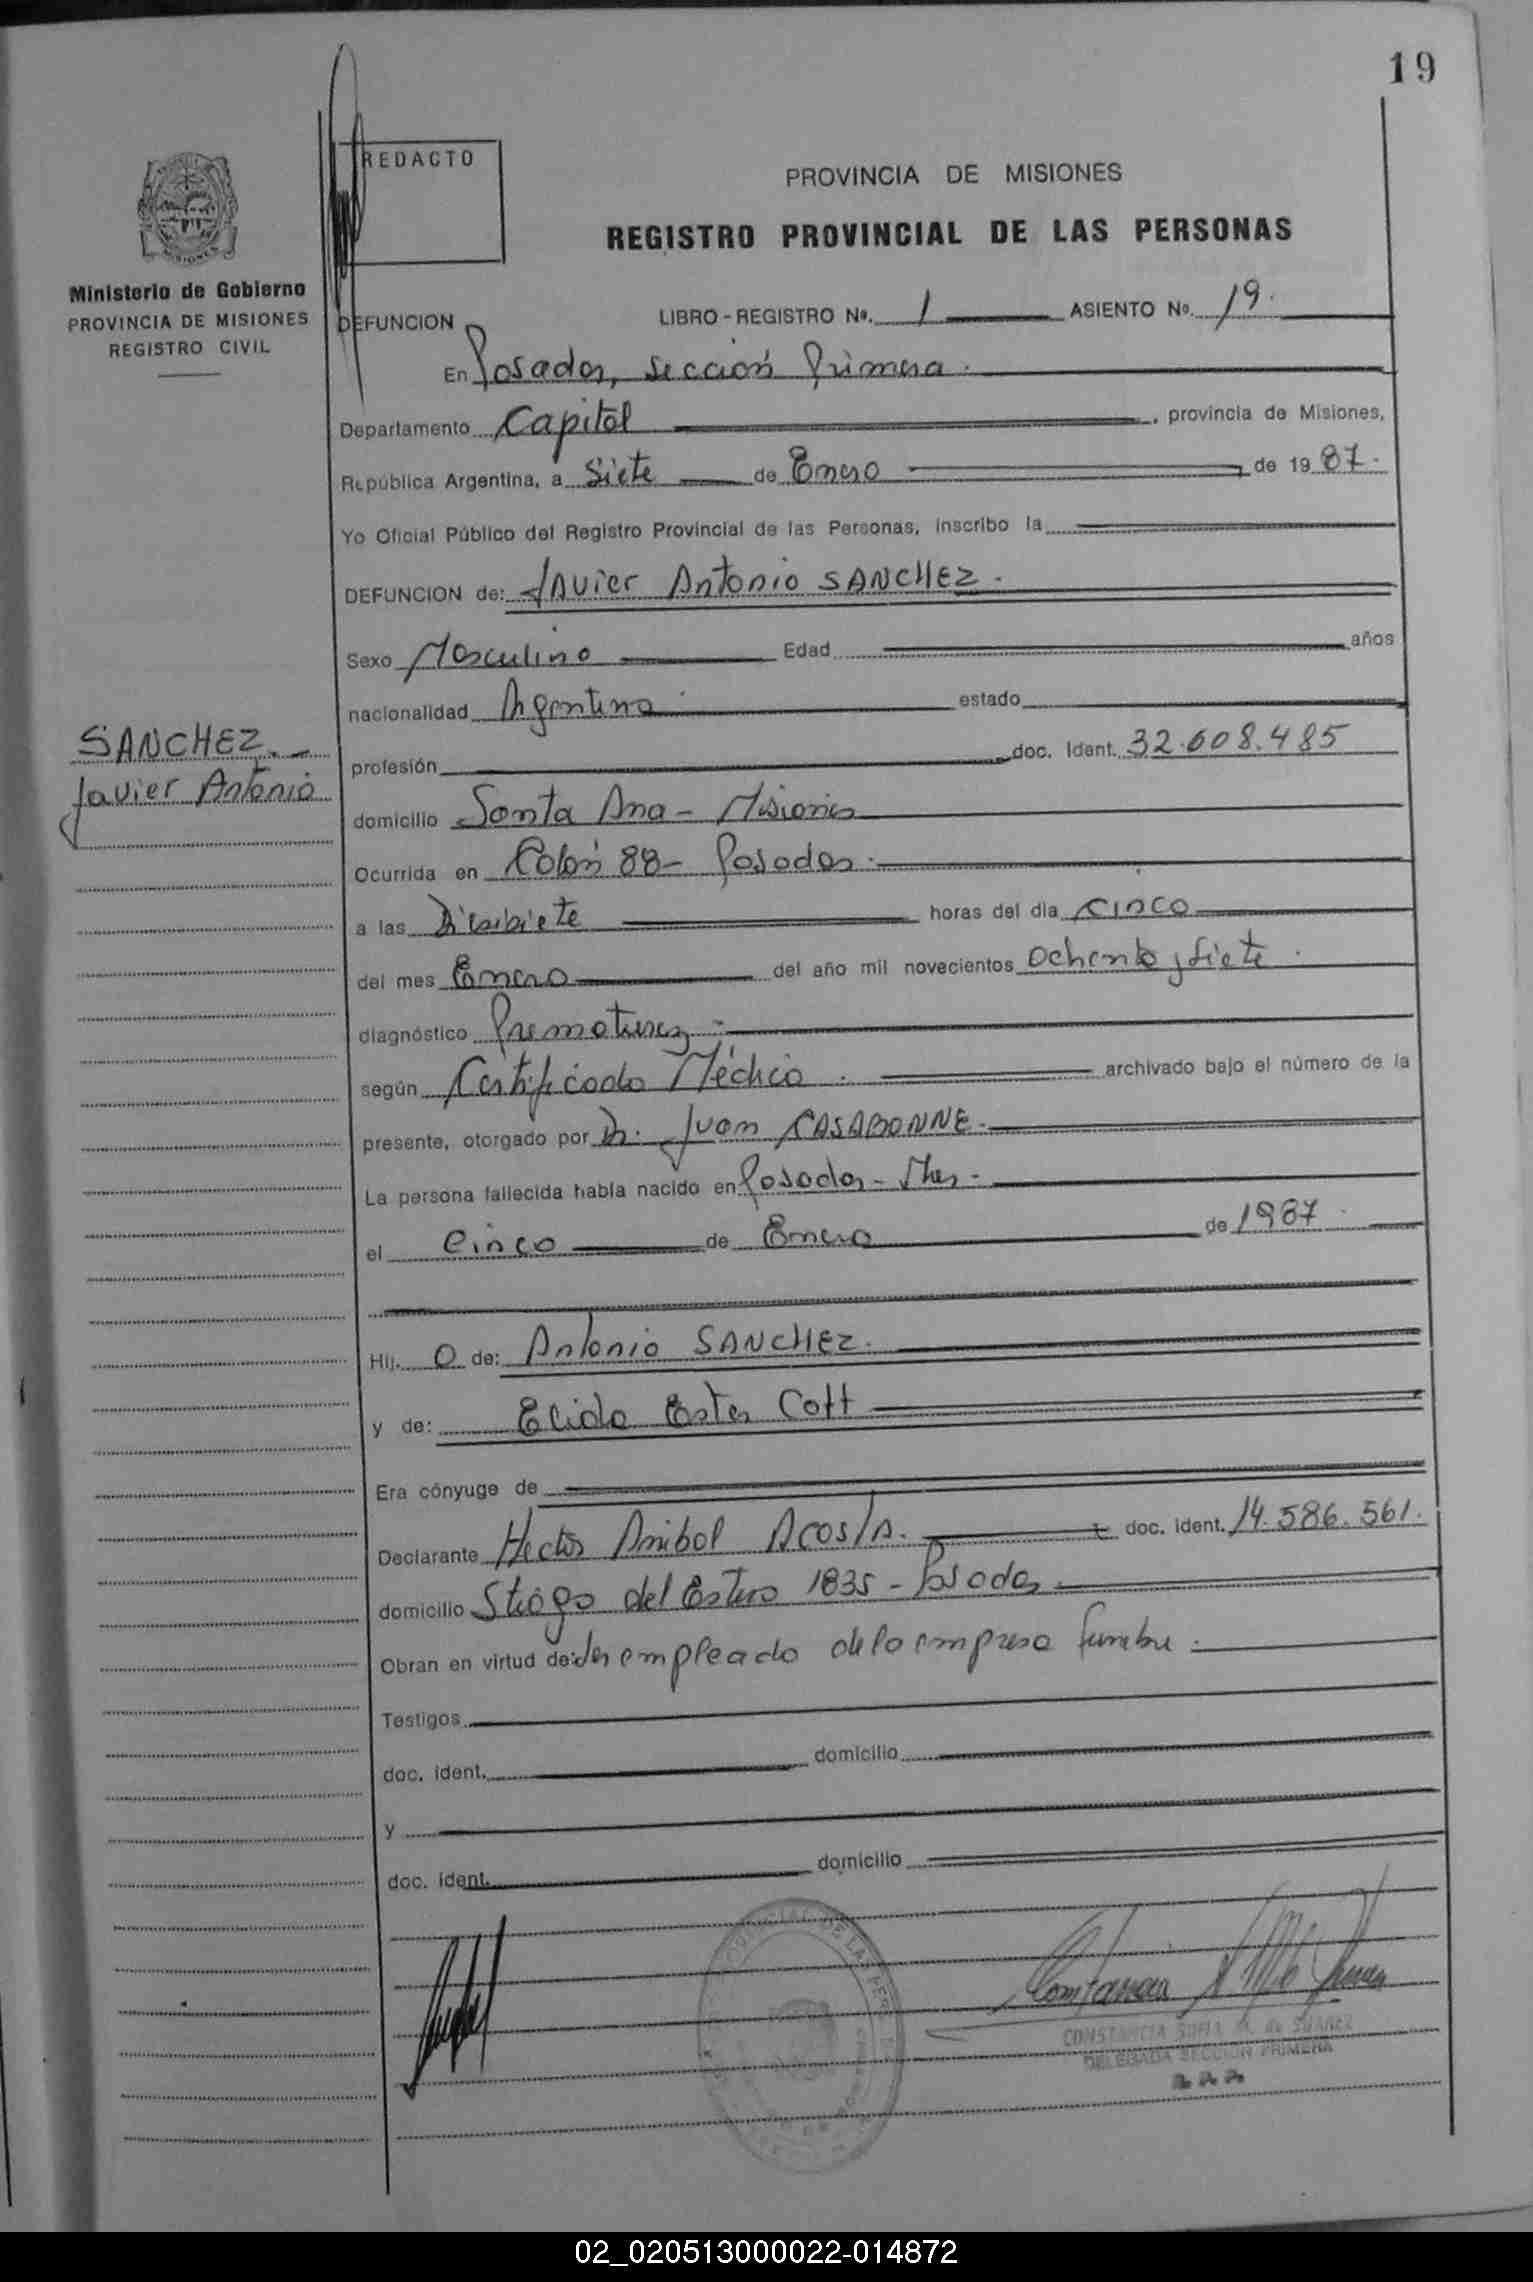 19
REDACTO
PROVINCIA DE MISIONES
REGISTRO PROVINCIAL DE LAS PERSONAS
Ministerio de Gobierno
PROVINCIA DE MISIONES
REGISTRO CIVIL
DEFUNCION LIBRO - REGISTRO Nº. 1 ASIENTO Nº. 19.
En Posadas, sección Primera.
Departamento Capital, provincia de Misiones,
República Argentina, a siete de Enero de 1987.
Yo Oficial Público del Registro Provincial de las Personas, inscribo la
DEFUNCION de: JAvier Antonio SANCHEZ.
Sexo Masculino Edad años
nacionalidad Argentina estado
SANCHEZ.
Javier Antonio
profesión doc. ident. 32.608.485
domicilio Santa Ana - Misiones
Ocurrida en Colón 88 - Posadas.
a las Diecisiete horas del día cinco
del mes Enero del año mil novecientos ochenta y siete.
diagnóstico Prematurez
según Certificado Médico. archivado bajo el número de la
presente, otorgado por Dr. Juan CASABONNE.
La persona fallecida había nacido en Posadas - Mnes -
el cinco de Enero de 1987.
Hij. o de: Antonio SANCHEZ.
y de: Elida Ester Cott
Era cónyuge de
Declarante Hector Anibal Acosta. doc. ident. 14.586.561.
domicilio Stiago del Estero 1835 - Posadas
Obran en virtud de: ser empleado de la empresa funebre.
Testigos
doc. ident. domicilio
y
doc. ident. domicilio
CONSTANCIA SOFIA M. de SUAREZ
DELEGADA SECCION PRIMERA
02_020513000022-014872